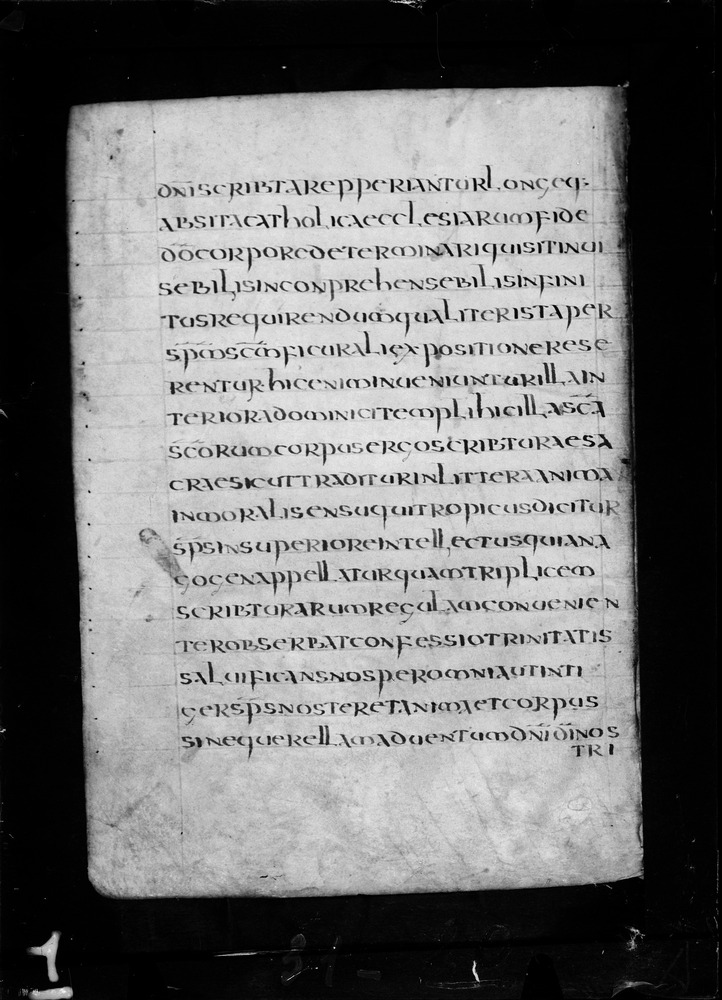 DNI SCRIBTA REPPERIANTUR LONGEQ·
ABSIT A CATHOLICA ECCLESIARUM FIDE
DO CORPORE DETERMINARI QUI SIT INUI
SEBILIS INCONPREHENSEBILIS INFINI
TUS REQUIRENDUM QUALITER ISTA PER
SPM SCM FIGURALI EXPOSITIONE RESE
RENTUR· HIC ENIM INUENIUNTUR ILLA IN
TERIORA DOMINICI TEMPLI HIC ILLA SCA
SCORUM CORPUS ERGO SCRIPTURAE SA
CRAE SICUT TRADITUR IN LITTERA ANIMA
IN MORALI SENSU QUI TROPICUS DICITUR
SPS IN SUPERIORE INTELLECTUS QUI ANA
GOGEN APPELLATUR QUAM TRIPLICEM
SCRIPTURARUM REGULAM CONUENIEN
TER OBSERBAT CONFESSIO TRINITATIS
SALUIFICANS NOS PER OMNIA UT INTI
GER SPS NOSTER ET ANIMA ET CORPUS
SINE QUERELLA M ADUENTUM DNI DI NOS
TRI